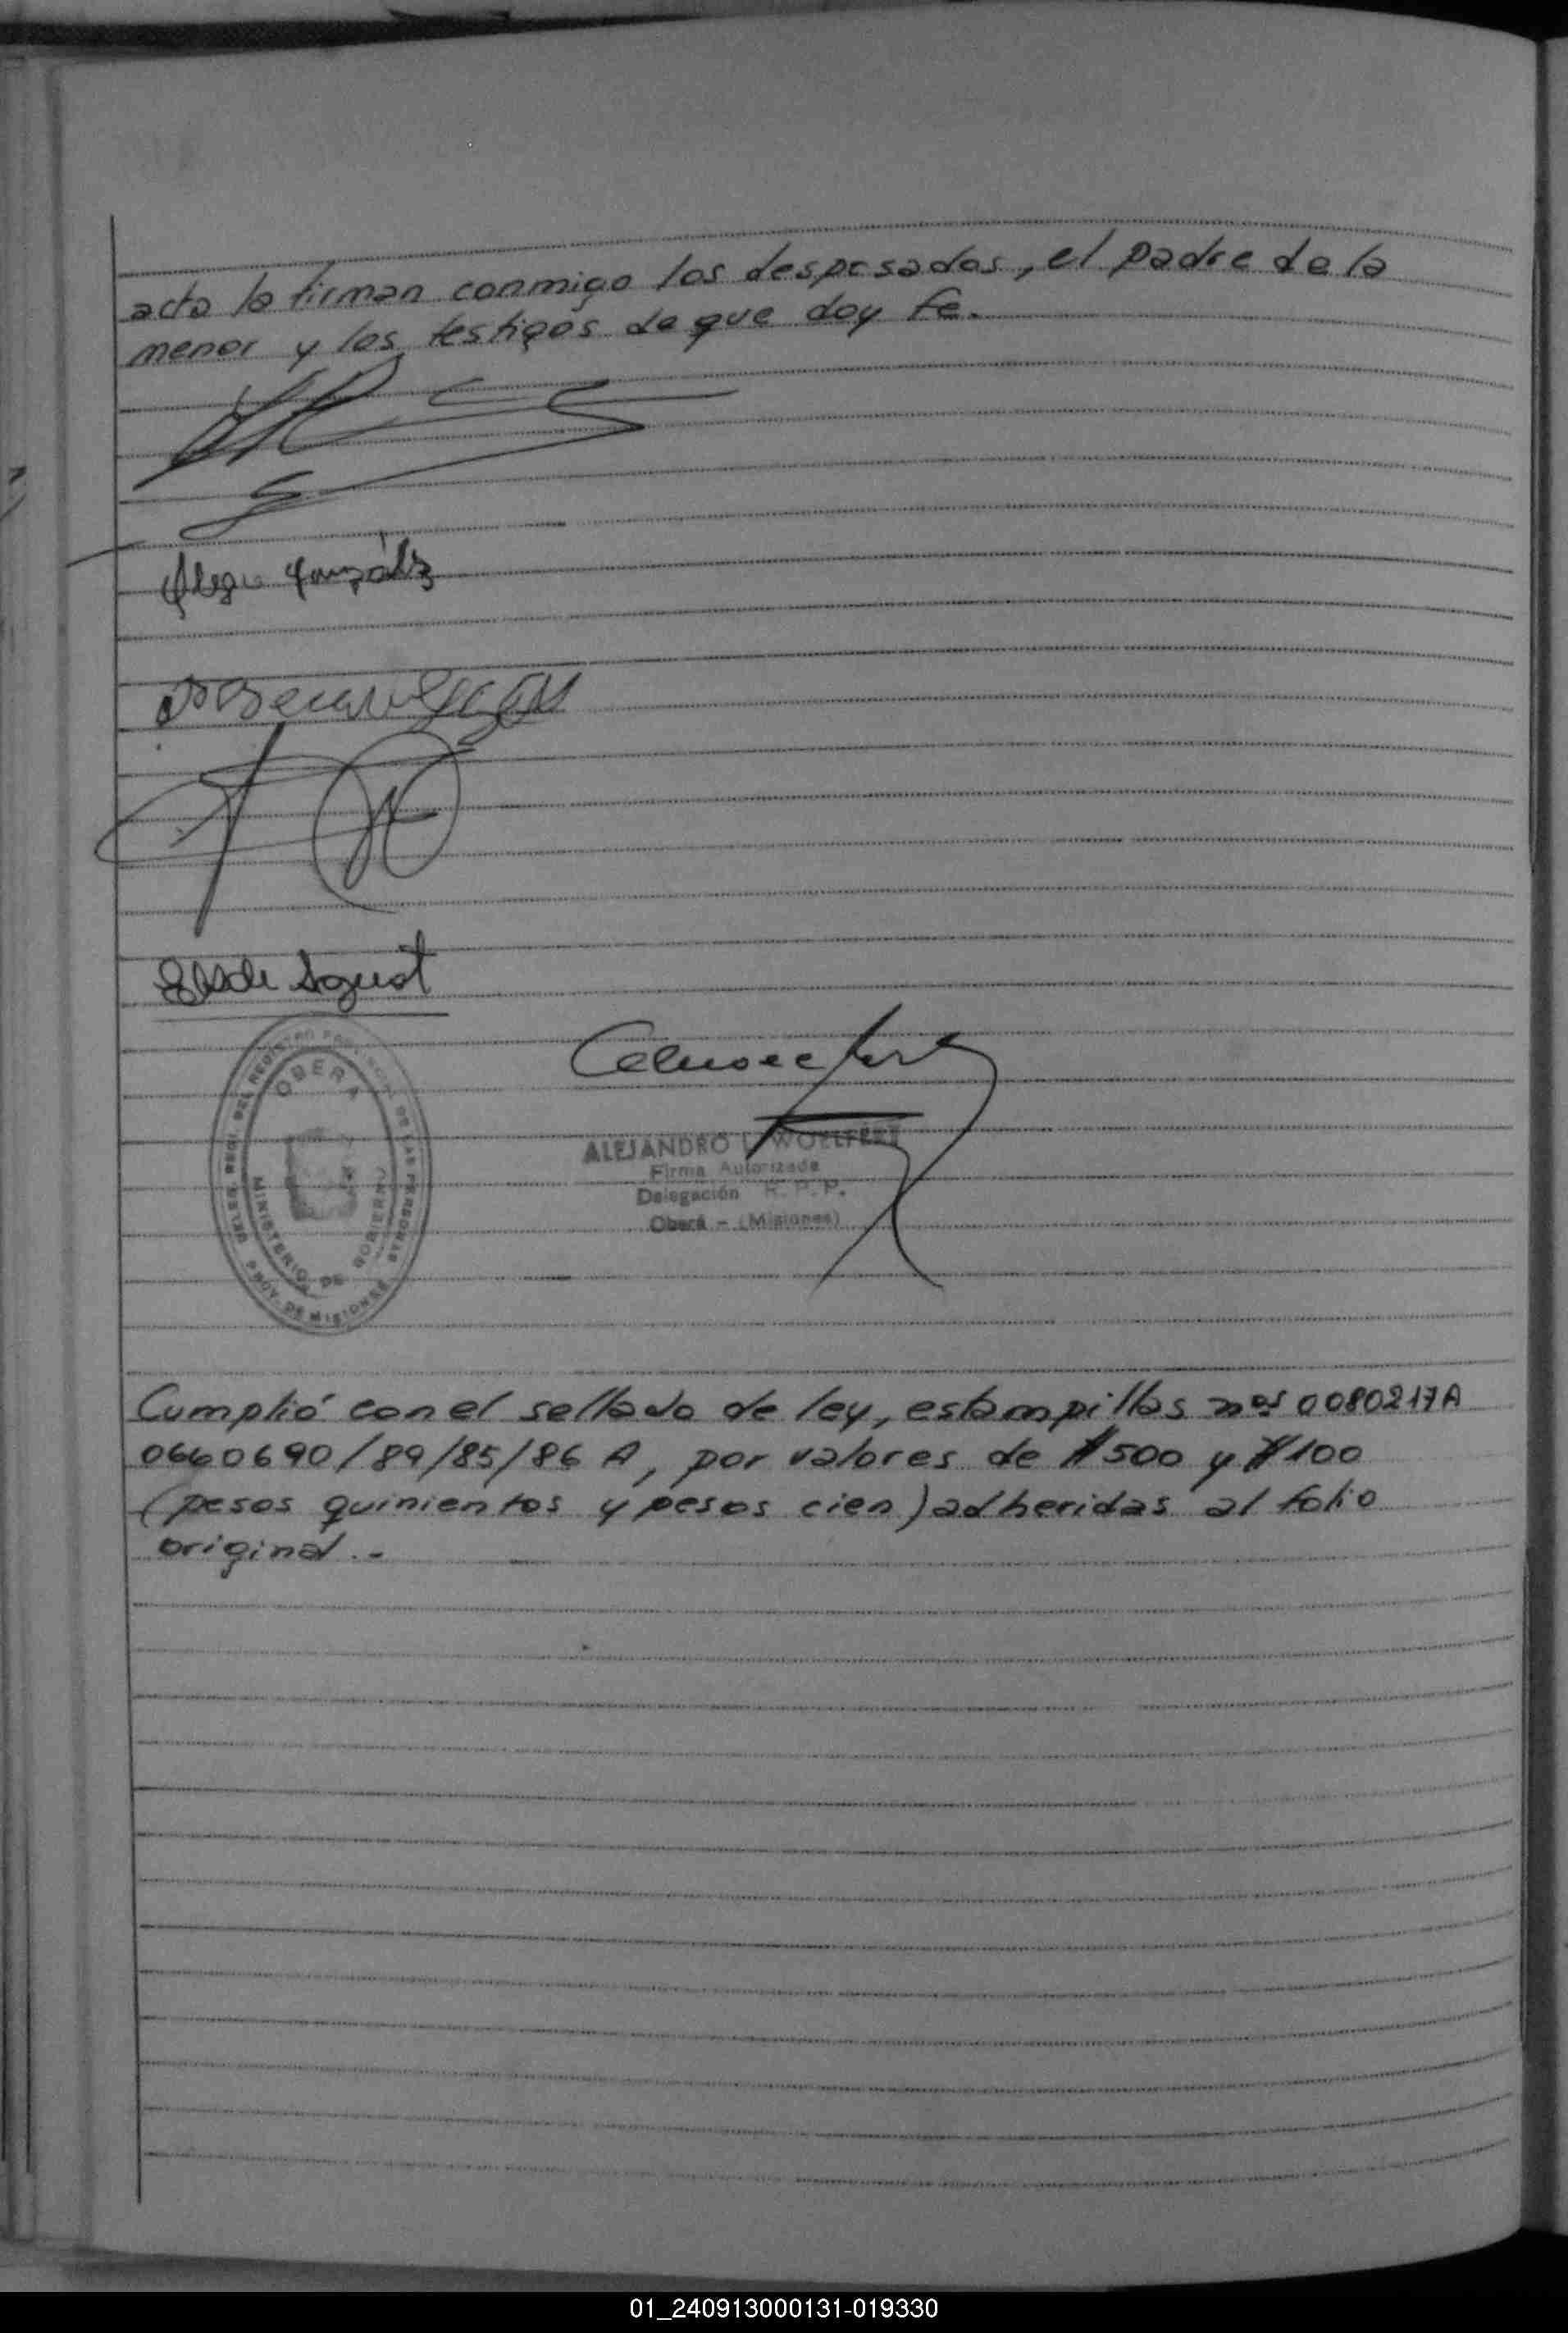 acta la firman conmigo los desposados, el padre de la
menor y los testigos de que doy fe.
González
OBERA
MINISTERIO DE GOBIERNO
PROV. DE MISIONES
ALEJANDRO L. WOELFERT
Firma Autorizada
Delegación R. P. P.
Oberá - (Misiones)
Cumplió con el sellado de ley, estampillas nos 0080217A
0660690/89/85/86 A, por valores de $500 y $100
(pesos quinientos y pesos cien) adheridas al folio
original.-
01_240913000131-019330